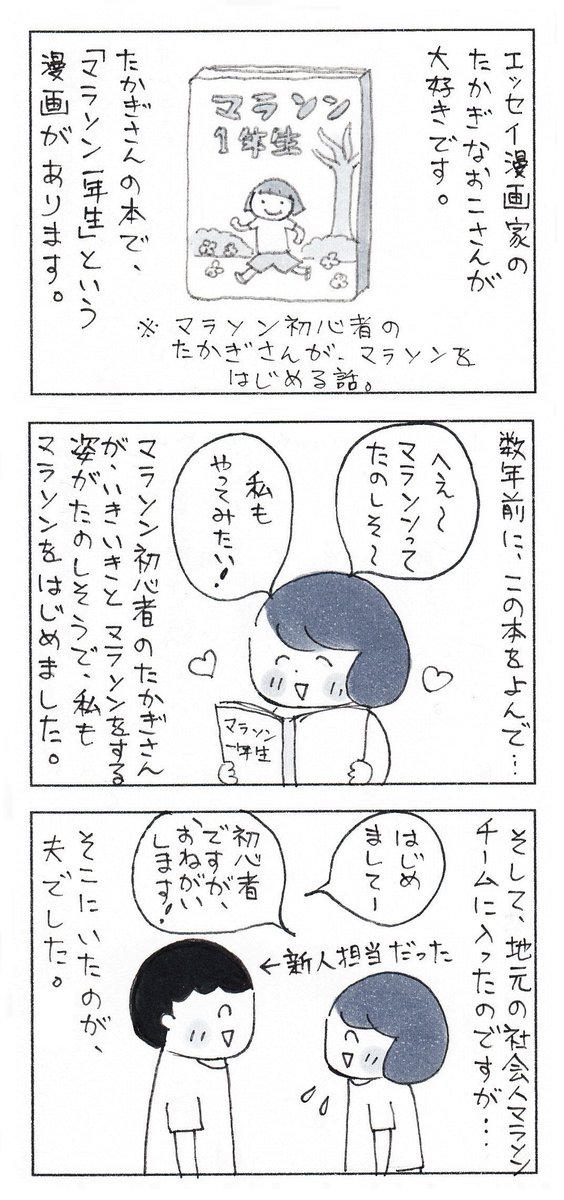 エッセイ漫画家の
たかぎなおこさんが
大好きです。
マラソン
1年生
たかぎさんの本で、
「マラソン一年生」という
漫画があります。
※マラソン初心者の
たかぎさんが、マラソンを
はじめる話。
数年前に、この本をよんで…
へぇ〜
マラソンって
たのしそ〜
私も
やってみたい!
マラソン
一年生
マラソン初心者のたかぎさん
が、いきいきとマラソンをする
姿がたのしそうで、私も
マラソンをはじめました。
そして、地元の社会人マラソン
チームに入ったのですが…
はじめ
ましてー
初心者
ですが、
おねがい
します!
←新人担当だった
そこにいたのが、
夫でした。